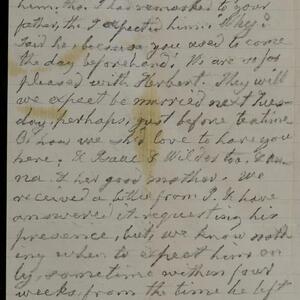 him, tho' I had remarked to your
father, tho I expected him. "Why?"
said he, because you used to come
the day beforehand." We are so far
pleased with Herbert. They will
we expect be married next Tues-
day, perhaps, just before tea time
O! how we should love to have you
here; & Isaac & Wilder too. &
na & her good mother. We
received a letter from J. & have
answered it requesting his
presence, but, we know noth-
ing when to expect him on
ly, sometime within four
weeks, from the time he left